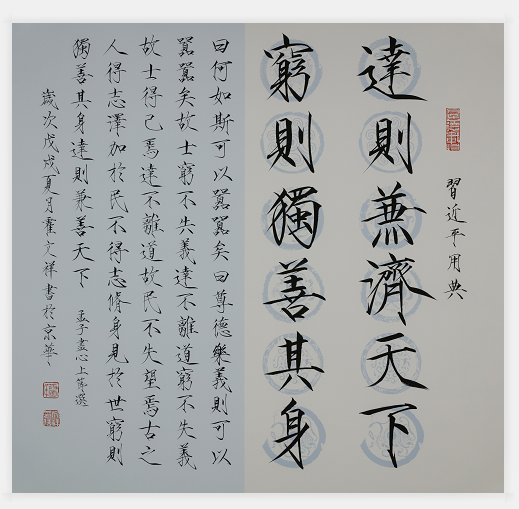 習近平用典
達則兼濟天下
窮則獨善其身
曰何如斯可以囂囂矣曰尊德樂義則可以
囂囂矣故士窮不失義達不離道窮不失義
故士得己焉達不離道故民不失望焉古之
人得志澤加於民不得志脩身見於世窮則
獨善其身達則兼善天下
孟子盡心上篇選
歲次戊戌夏月霍文祥書於京華